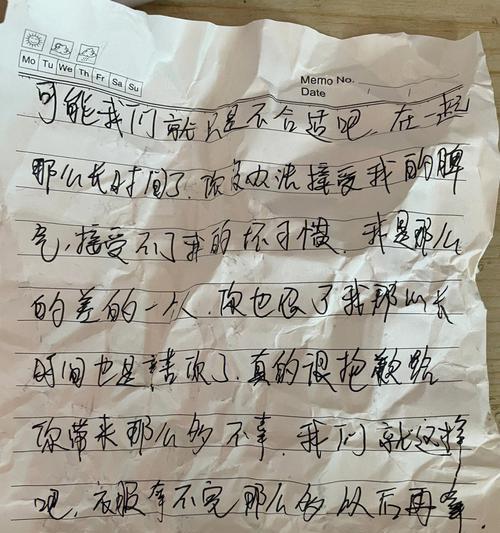 Mo Tu We Th Fr Sa Su
Memo No.
Date / /
可能我们就只是不合适吧. 在一起
那么长时间了. 你没办法接受我的脾
气, 接受不了我的坏习惯. 我是那么
的差的一个人. 你也忍了我那么长
时间也是辛苦你了. 真的很抱歉给
你带来那么多不幸. 我们就这样
吧. 衣服拿不完那么多 以后再拿.